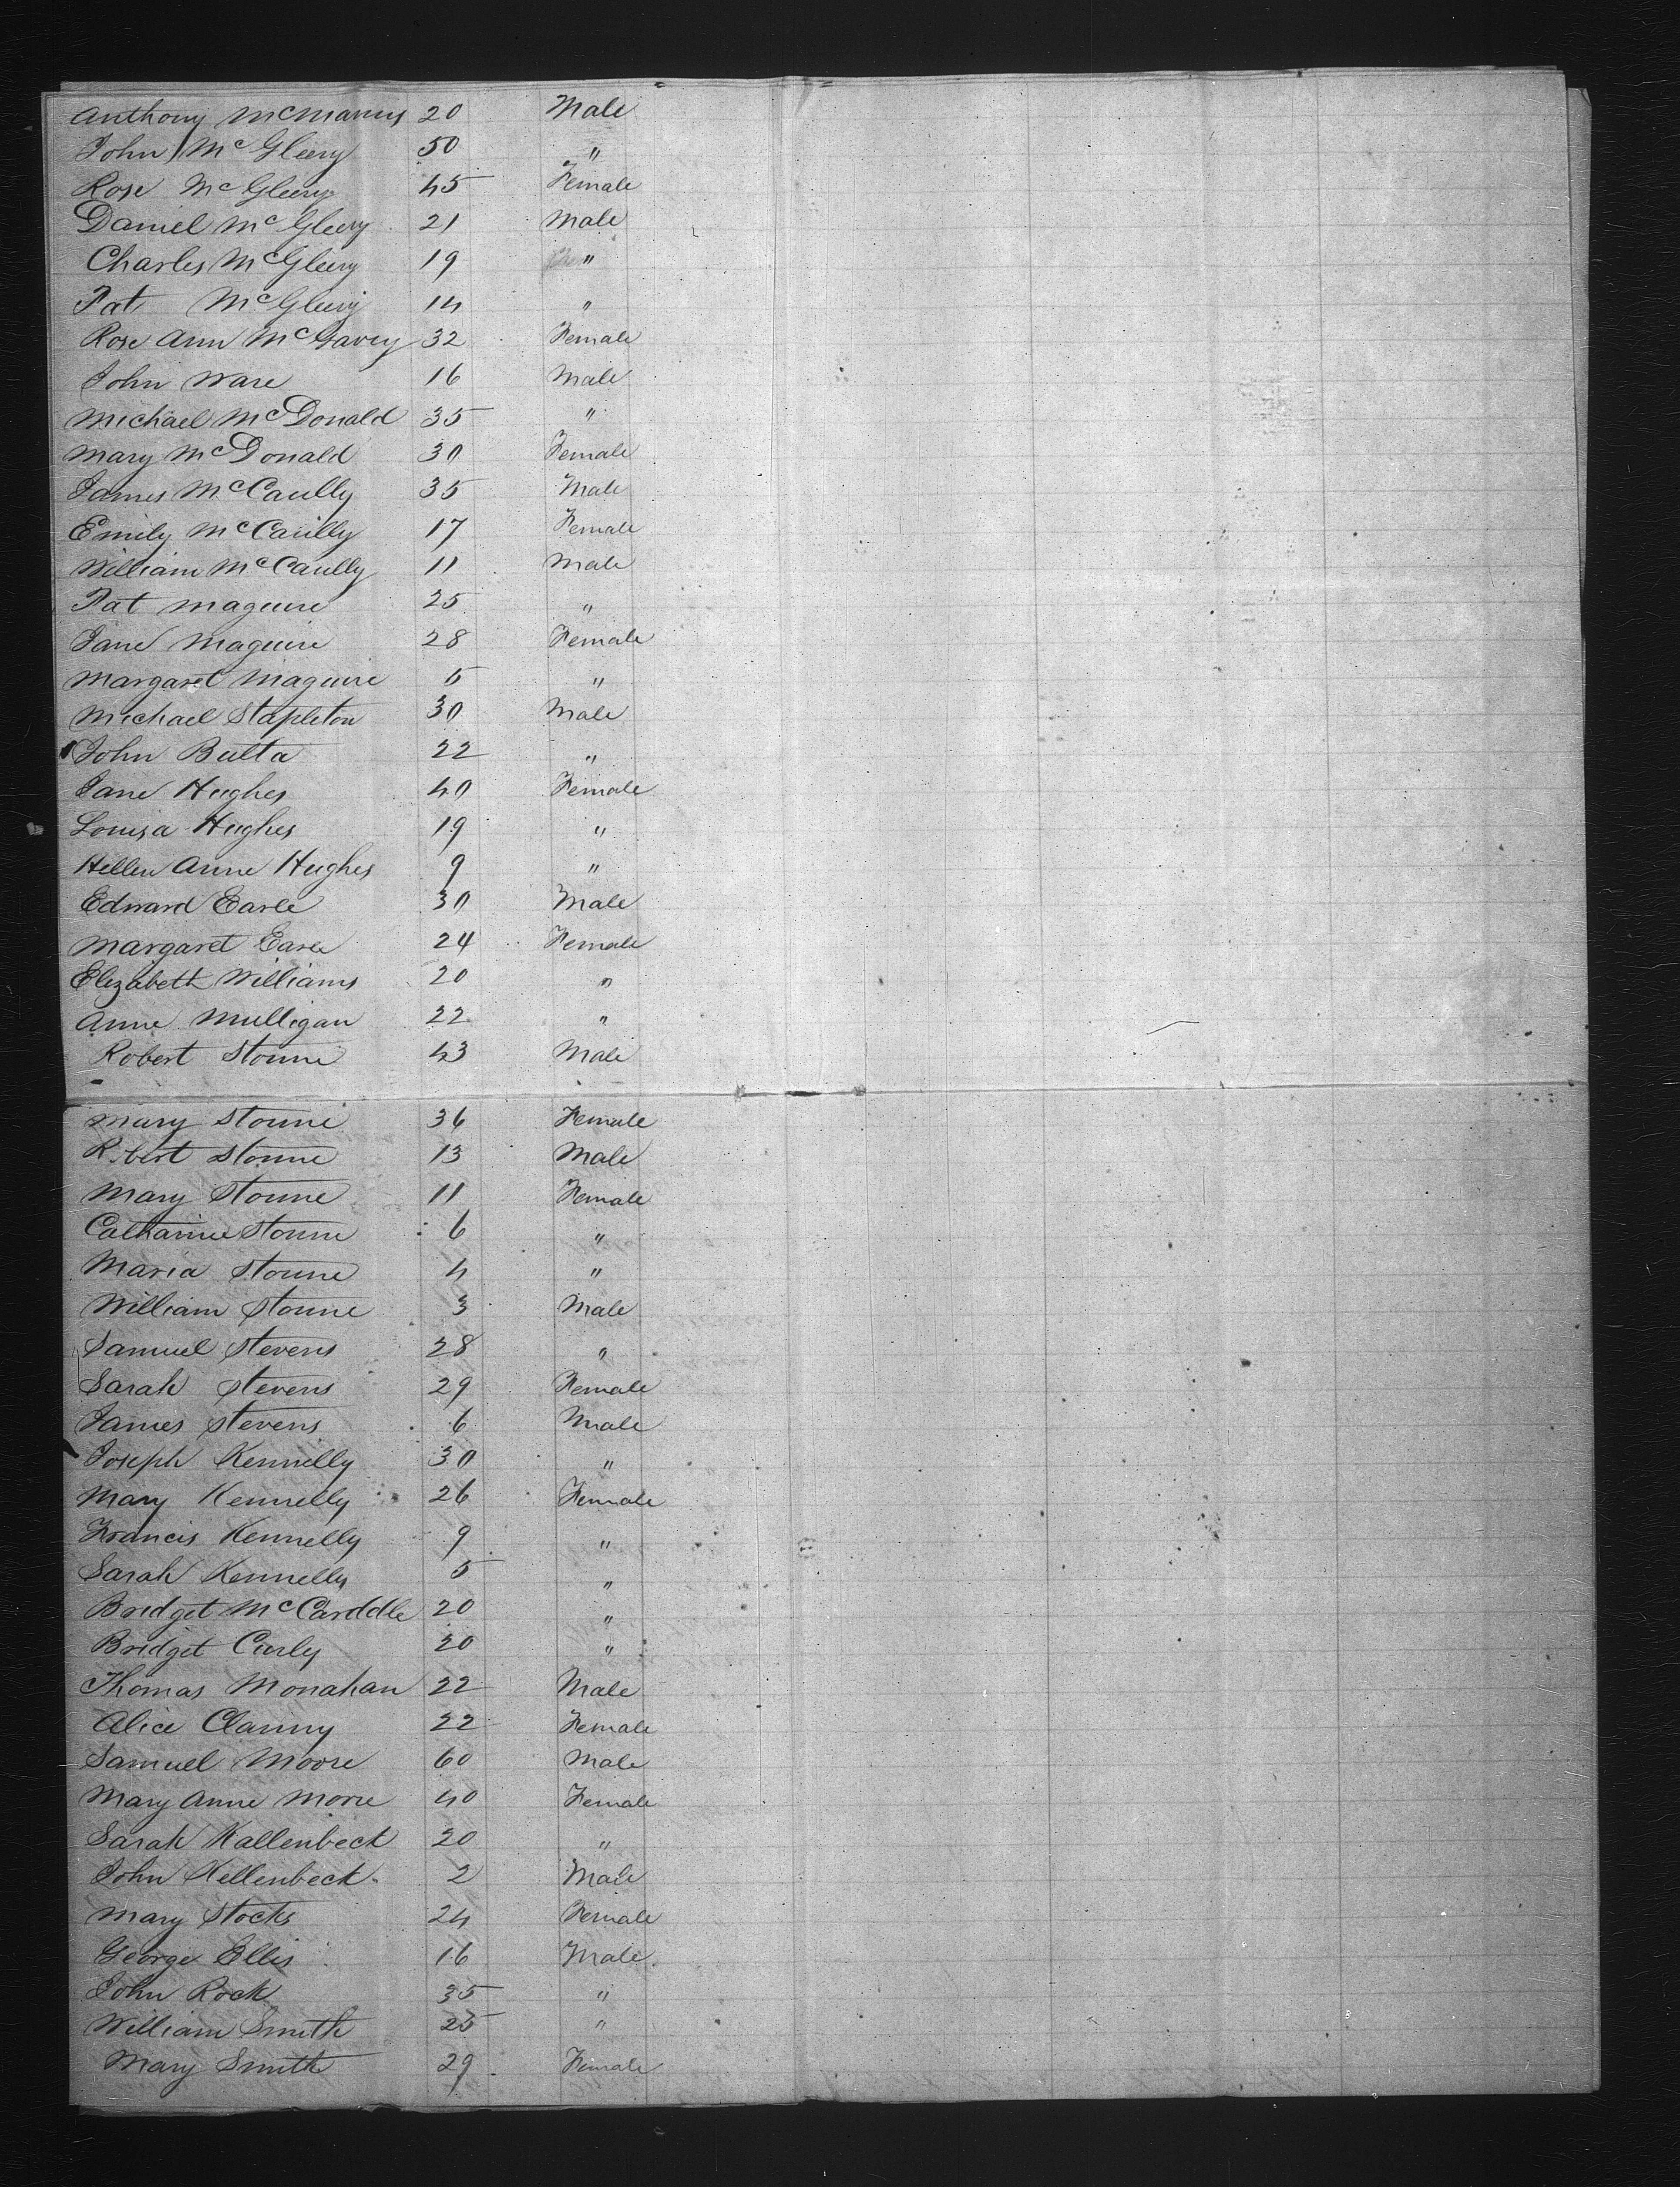 Anthony McManus 20 Male
John McGleery 50 "
Rose McGleery 45 Female
Daniel McGleery 21 Male
Charles McGleery 19 "
Pat McGleery 14 "
Rose Ann McGavey 32 Female
John Ware 16 Male
Michael McDonald 35 "
Mary McDonald 30 Female
James McCaully 35 Male
Emily McCaully 17 Female
William McCaully 11 Male
Pat Maguire 25 "
Jane Maguire 28 Female
Margaret Maguire 5 "
Michael Stapleton 30 Male
John Bulta 22 "
Jane Hughes 40 Female
Louisa Hughes 19 "
Hellen Anne Hughes 9 "
Edward Earle 30 Male
Margaret Earle 24 Female
Elizabeth Williams 20 "
Anne Mulligan 22 "
Robert Stonne 43 Male
Mary Stonne 36 Female
Robert Stonne 13 Male
Mary Stonne 11 Female
Catharine Stonne 6 "
Maria Stonne 4 "
William Stonne 3 Male
Samuel Stevens 28 "
Sarah Stevens 29 Female
James Stevens 6 Male
Joseph Kennelly 30 "
Mary Kennelly 26 Female
Francis Kennelly 9 "
Sarah Kennelly 5 "
Bridget McCarddle 20 "
Bridget Curly 20 "
Thomas Monahan 22 Male
Alice Clanny 22 Female
Samuel Moore 60 Male
Mary Anne Moore 40 Female
Sarah Kallenbeck 20 "
John Kellenbeck 2 Male
Mary Stocks 24 Female
George Ellis 16 Male
John Rock 35 "
William Smith 25 "
Mary Smith 29 Female